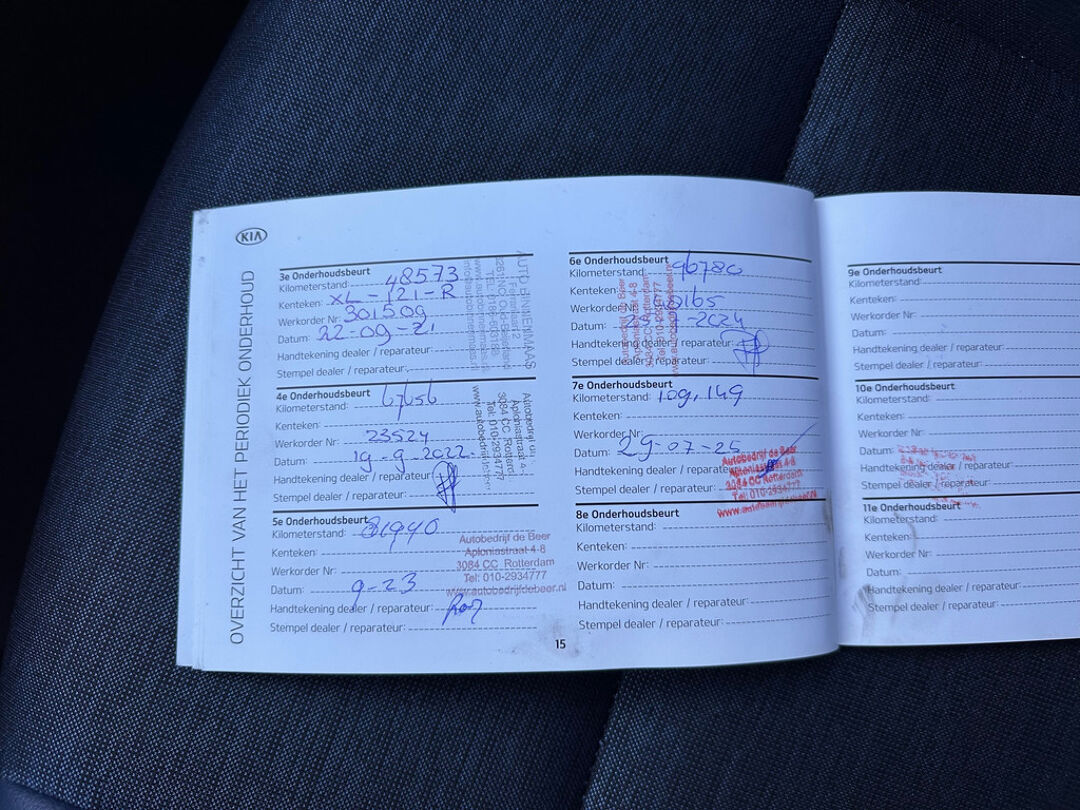 KIA
OVERZICHT VAN HET PERIODIEK ONDERHOUD
3e Onderhoudsbeurt
Kilometerstand: 48573
Kenteken: XL-121-R
Werkorder Nr: 301509
Datum: 22-09-21
Handtekening dealer / reparateur:
Stempel dealer / reparateur:
AUTO BINNENMAAS
4e Onderhoudsbeurt
Kilometerstand: 67656
Kenteken:
Werkorder Nr: 23524
Datum: 19-9-2022
Handtekening dealer / reparateur:
Stempel dealer / reparateur:
Aploniastraat 4-
3084 CC Rotterd
Tel: 010-2934777
5e Onderhoudsbeurt
Kilometerstand: 81940
Kenteken:
Werkorder Nr:
Datum: 9-23
Handtekening dealer / reparateur:
Stempel dealer / reparateur:
Autobedrijf de Beer
Aploniastraat 4-8
3084 CC Rotterdam
Tel: 010-2934777
www.autobedrijfdebeer.nl
6e Onderhoudsbeurt
Kilometerstand: 96780
Kenteken:
Werkorder Nr:
Datum: -2024
Handtekening dealer / reparateur:
Stempel dealer / reparateur:
Autobedrijf de Beer
Aploniastraat 4-8
3084 CC Rotterdam
Tel: 010-2934777
7e Onderhoudsbeurt
Kilometerstand: 109,149
Kenteken:
Werkorder Nr:
Datum: 29-07-25
Handtekening dealer / reparateur:
Stempel dealer / reparateur:
Autobedrijf de Beer
Aploniastraat 4-8
3084 CC Rotterdam
Tel: 010-2934777
www.autobedrijfdebeer.nl
8e Onderhoudsbeurt
Kilometerstand:
Kenteken:
Werkorder Nr:
Datum:
Handtekening dealer / reparateur:
Stempel dealer / reparateur:
15
9e Onderhoudsbeurt
Kilometerstand:
Kenteken:
Werkorder Nr:
Datum:
Handtekening dealer / reparateur:
Stempel dealer / reparateur:
10e Onderhoudsbeurt
Kilometerstand:
Kenteken:
Werkorder Nr:
Datum:
Handtekening dealer / reparateur:
Stempel dealer / reparateur:
11e Onderhoudsbeurt
Kilometerstand:
Kenteken:
Werkorder Nr:
Datum:
Handtekening dealer / reparateur:
Stempel dealer / reparateur: